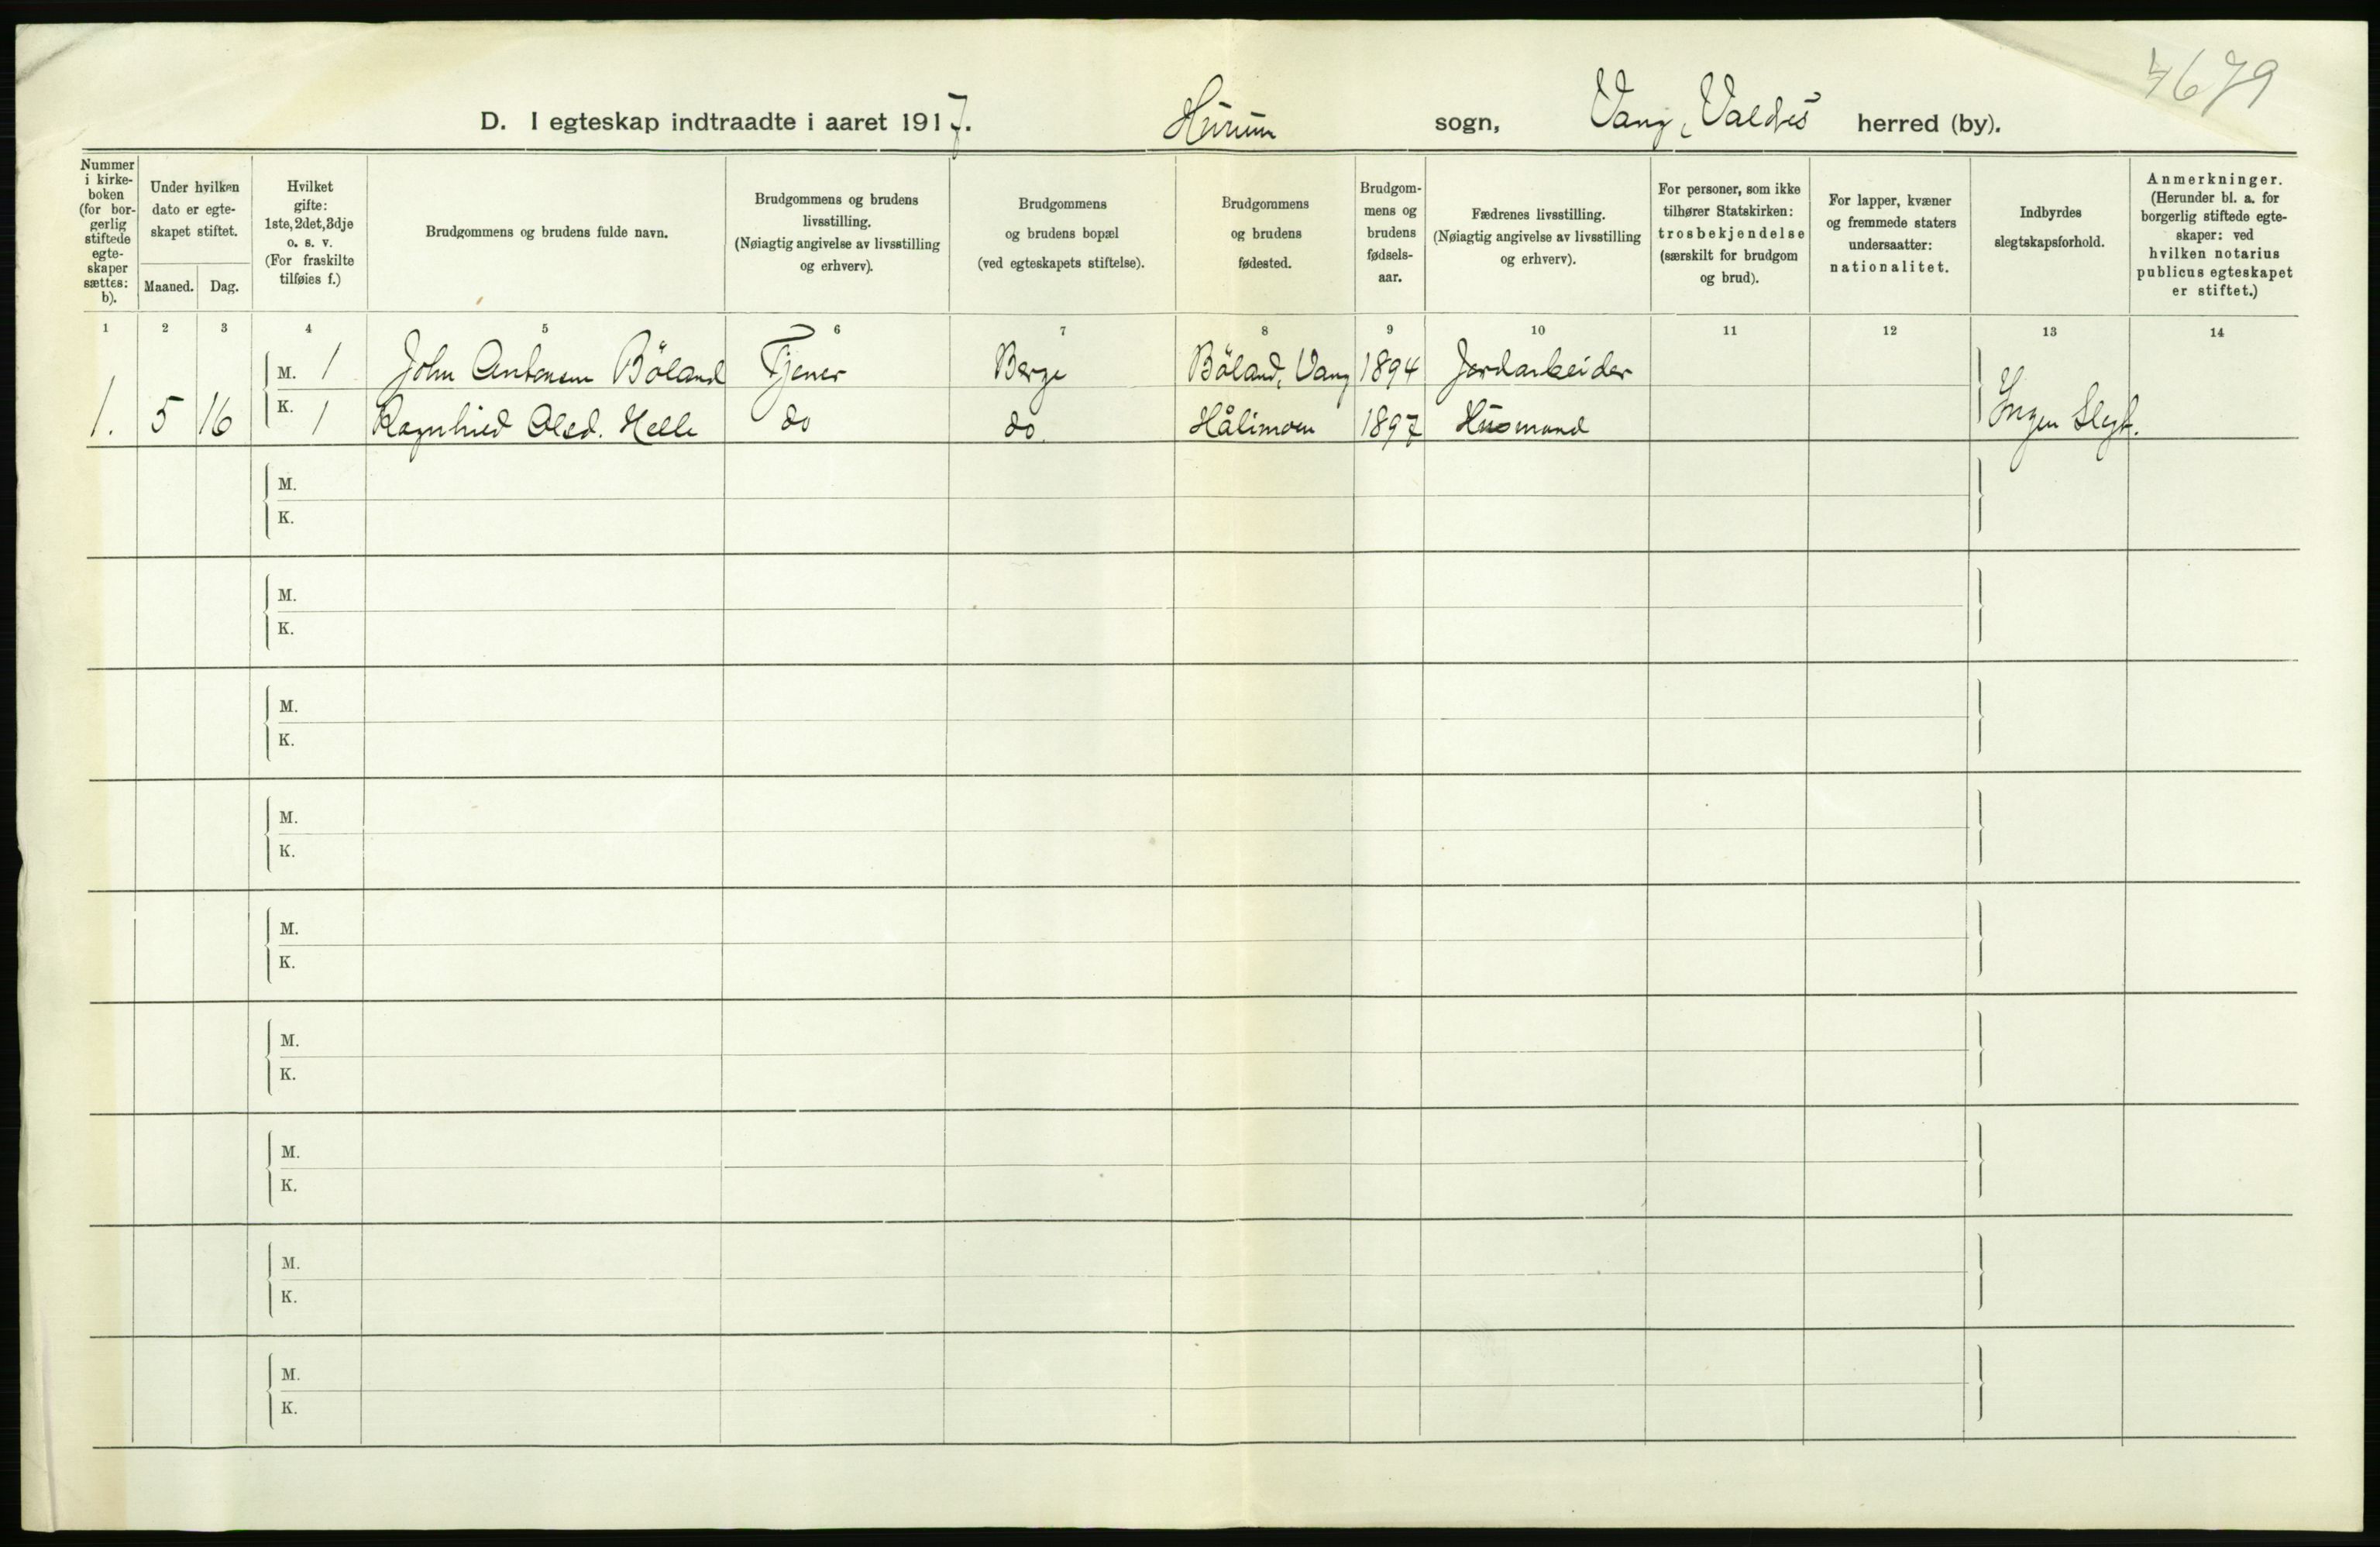 4679
D. I egteskap indtraadte i aaret 1917. Hurum sogn, Vang, Valdres herred (by).
Nummer i kirke- boken (for bor- gerlig stiftede egte- skaper sættes: b).
Under hvilken dato er egte- skapet stiftet.
Maaned. Dag.
Hvilket gifte: 1ste, 2det, 3dje o. s. v. (For fraskilte tilføies f.)
Brudgommens og brudens fulde navn.
Brudgommens og brudens livsstilling. (Nøiagtig angivelse av livsstilling og erhverv).
Brudgommens og brudens bopæl (ved egteskapets stiftelse).
Brudgommens og brudens fødested.
Brudgom- mens og brudens fødsels- aar.
Fædrenes livsstilling. (Nøiagtig angivelse av livsstilling og erhverv).
For personer, som ikke tilhører Statskirken: trosbekjendelse (særskilt for brudgom og brud).
For lapper, kvæner og fremmede staters undersaatter: nationalitet.
Indbyrdes slegtskapsforhold.
Anmerkninger. (Herunder bl. a. for borgerlig stiftede egte- skaper: ved hvilken notarius publicus egteskapet er stiftet.)
1 2 3 4 5 6 7 8 9 10 11 12 13 14
M. 1 John Antonsen Böland Tjener Berge Böland, Vang 1894 Jordarbeider
1. 5 16 K. 1 Ragnhild Olsd. Helle do do Hålimoen 1897 Husmand Ingen Slegt.
M.
K.
M.
K.
M.
K.
M.
K.
M.
K.
M.
K.
M.
K.
M.
K.
M.
K.